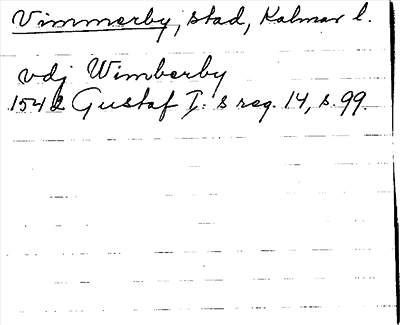 Vimmerby, stad, Kalmar l.
vdj Wimberby
1542 Gustaf I:s reg. 14, s. 99.